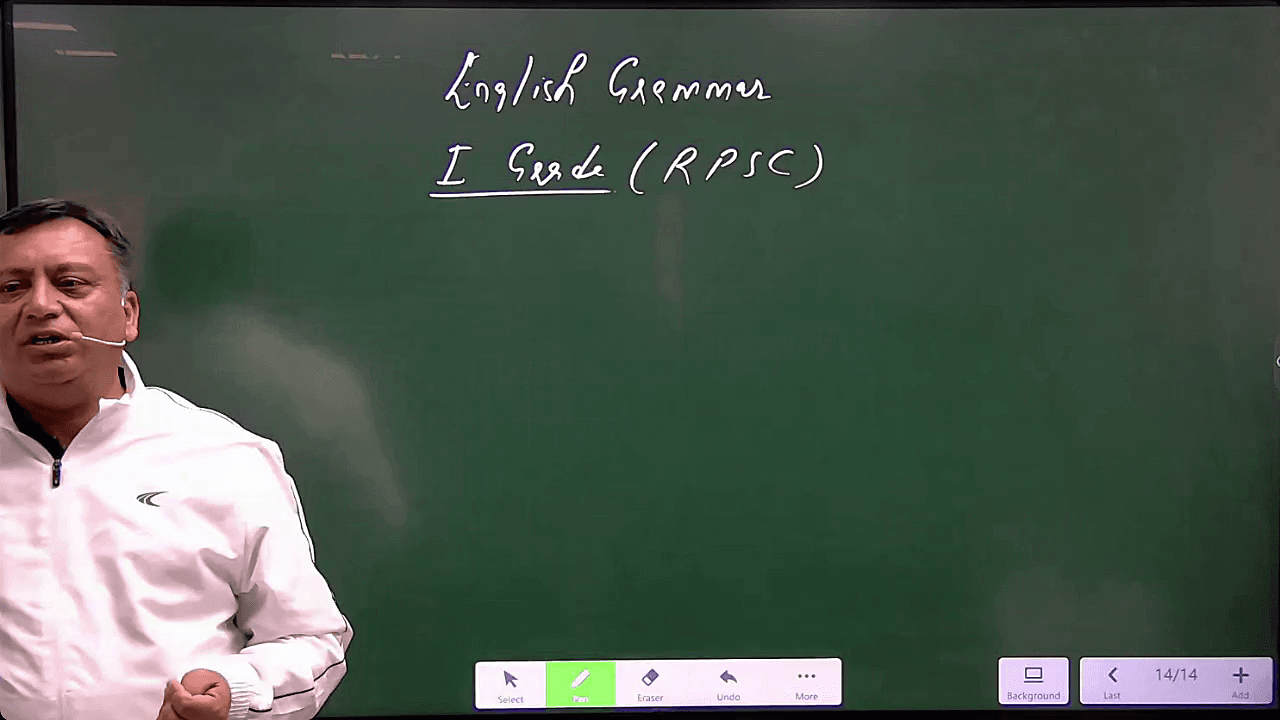 English Grammar
I Grade (RPSC)
Select
Pen
Eraser
Undo
More
Background
Last
14/14
Add